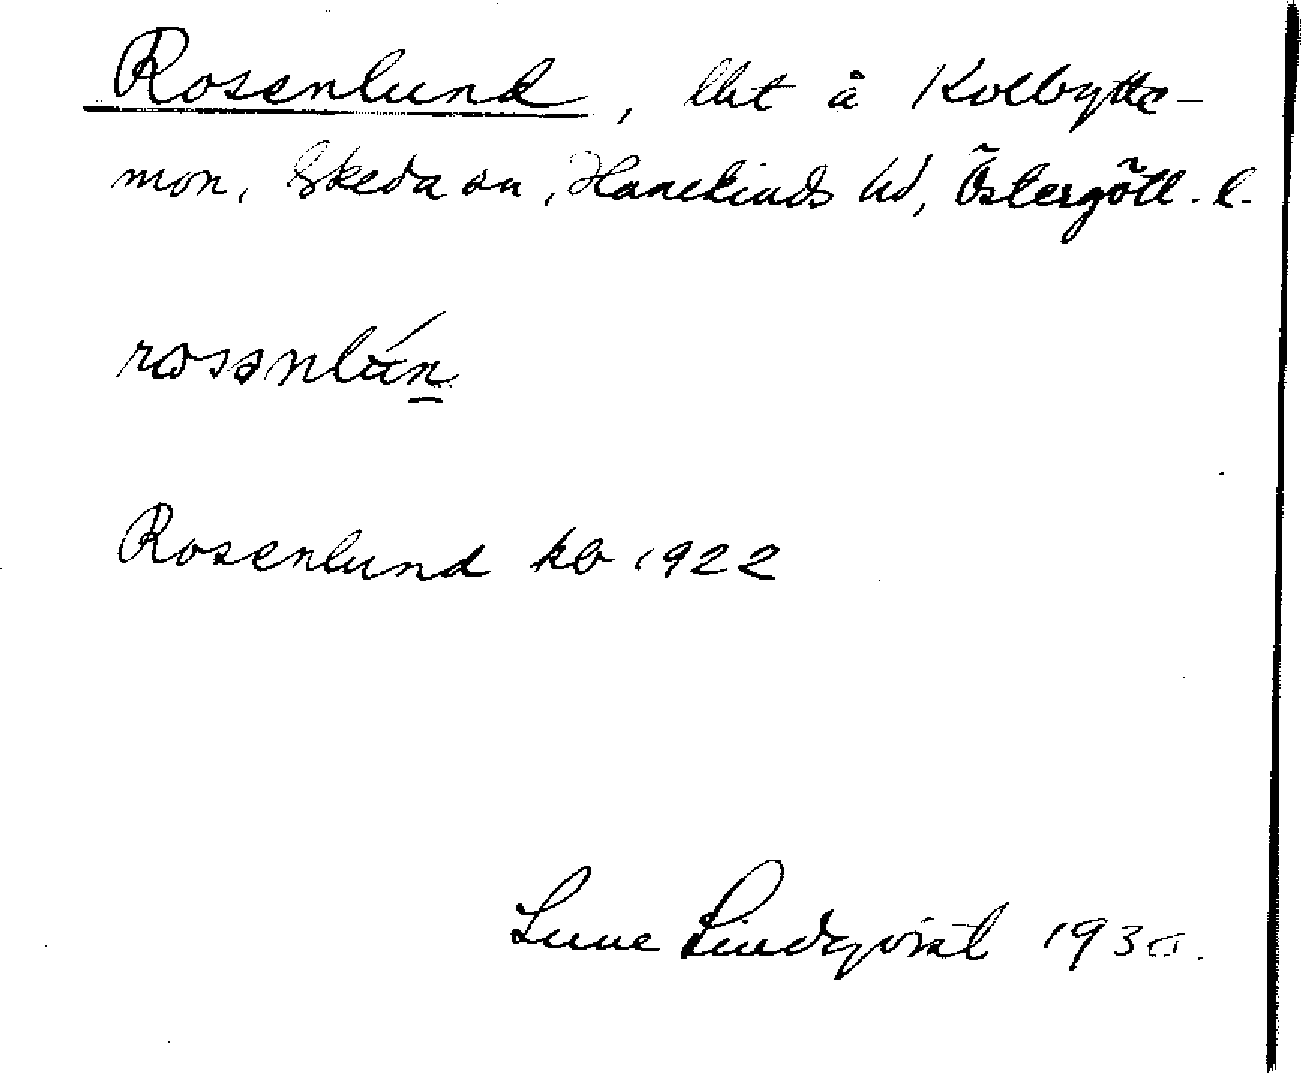 Rosenlund, lht å Kolbytte-
mon, Skeda sn, Hanekinds hd, Östergötl. l.
rosənlún
Rosenlund kb 1922
Sune Lindqvist 1930.